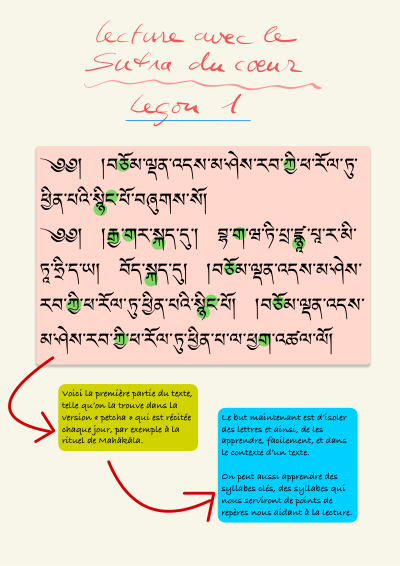 Lecture avec le
Sutra du cœur
Leçon 1
༄༅། །བཅོམ་ལྡན་འདས་མ་ཤེས་རབ་ཀྱི་ཕ་རོལ་ཏུ་
ཕྱིན་པའི་སྙིང་པོ་བཞུགས་སོ།
༄༅། །རྒྱ་གར་སྐད་དུ། བྷ་ག་ཝ་ཏི་པྲ་ཛྙཱ་པཱ་ར་མི་
ཏཱ་ཧྲི་ད་ཡ། བོད་སྐད་དུ། །བཅོམ་ལྡན་འདས་མ་ཤེས་
རབ་ཀྱི་ཕ་རོལ་ཏུ་ཕྱིན་པའི་སྙིང་པོ། །བཅོམ་ལྡན་འདས་
མ་ཤེས་རབ་ཀྱི་ཕ་རོལ་ཏུ་ཕྱིན་པ་ལ་ཕྱག་འཚལ་ལོ།
Voici la première partie du texte,
telle qu'on la trouve dans la
version « petcha » qui est récitée
chaque jour, par exemple à la
rituel de Mahākāla.
Le but maintenant est d'isoler
des lettres et ainsi, de les
apprendre, facilement, et dans
le contexte d'un texte.
On peut aussi apprendre des
syllabes clés, des syllabes qui
nous serviront de points de
repères nous aidant à la lecture.